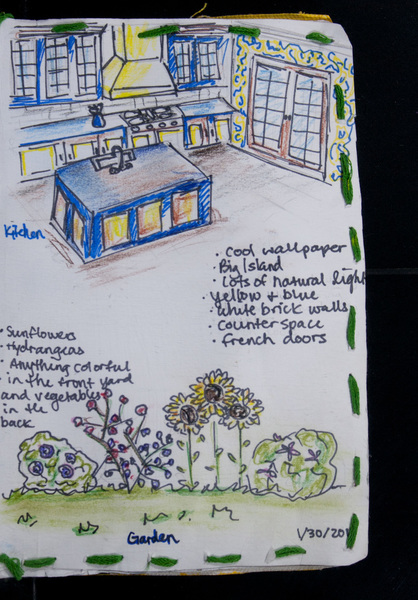 Kitchen
• Cool wallpaper
• Big Island
• Lots of natural light
• yellow + blue
• White brick walls
• Counter space
• french doors
• Sunflowers
• Hydrangeas
• Anything colorful
in the front yard
and vegetables
in the
back
Garden
1/30/201